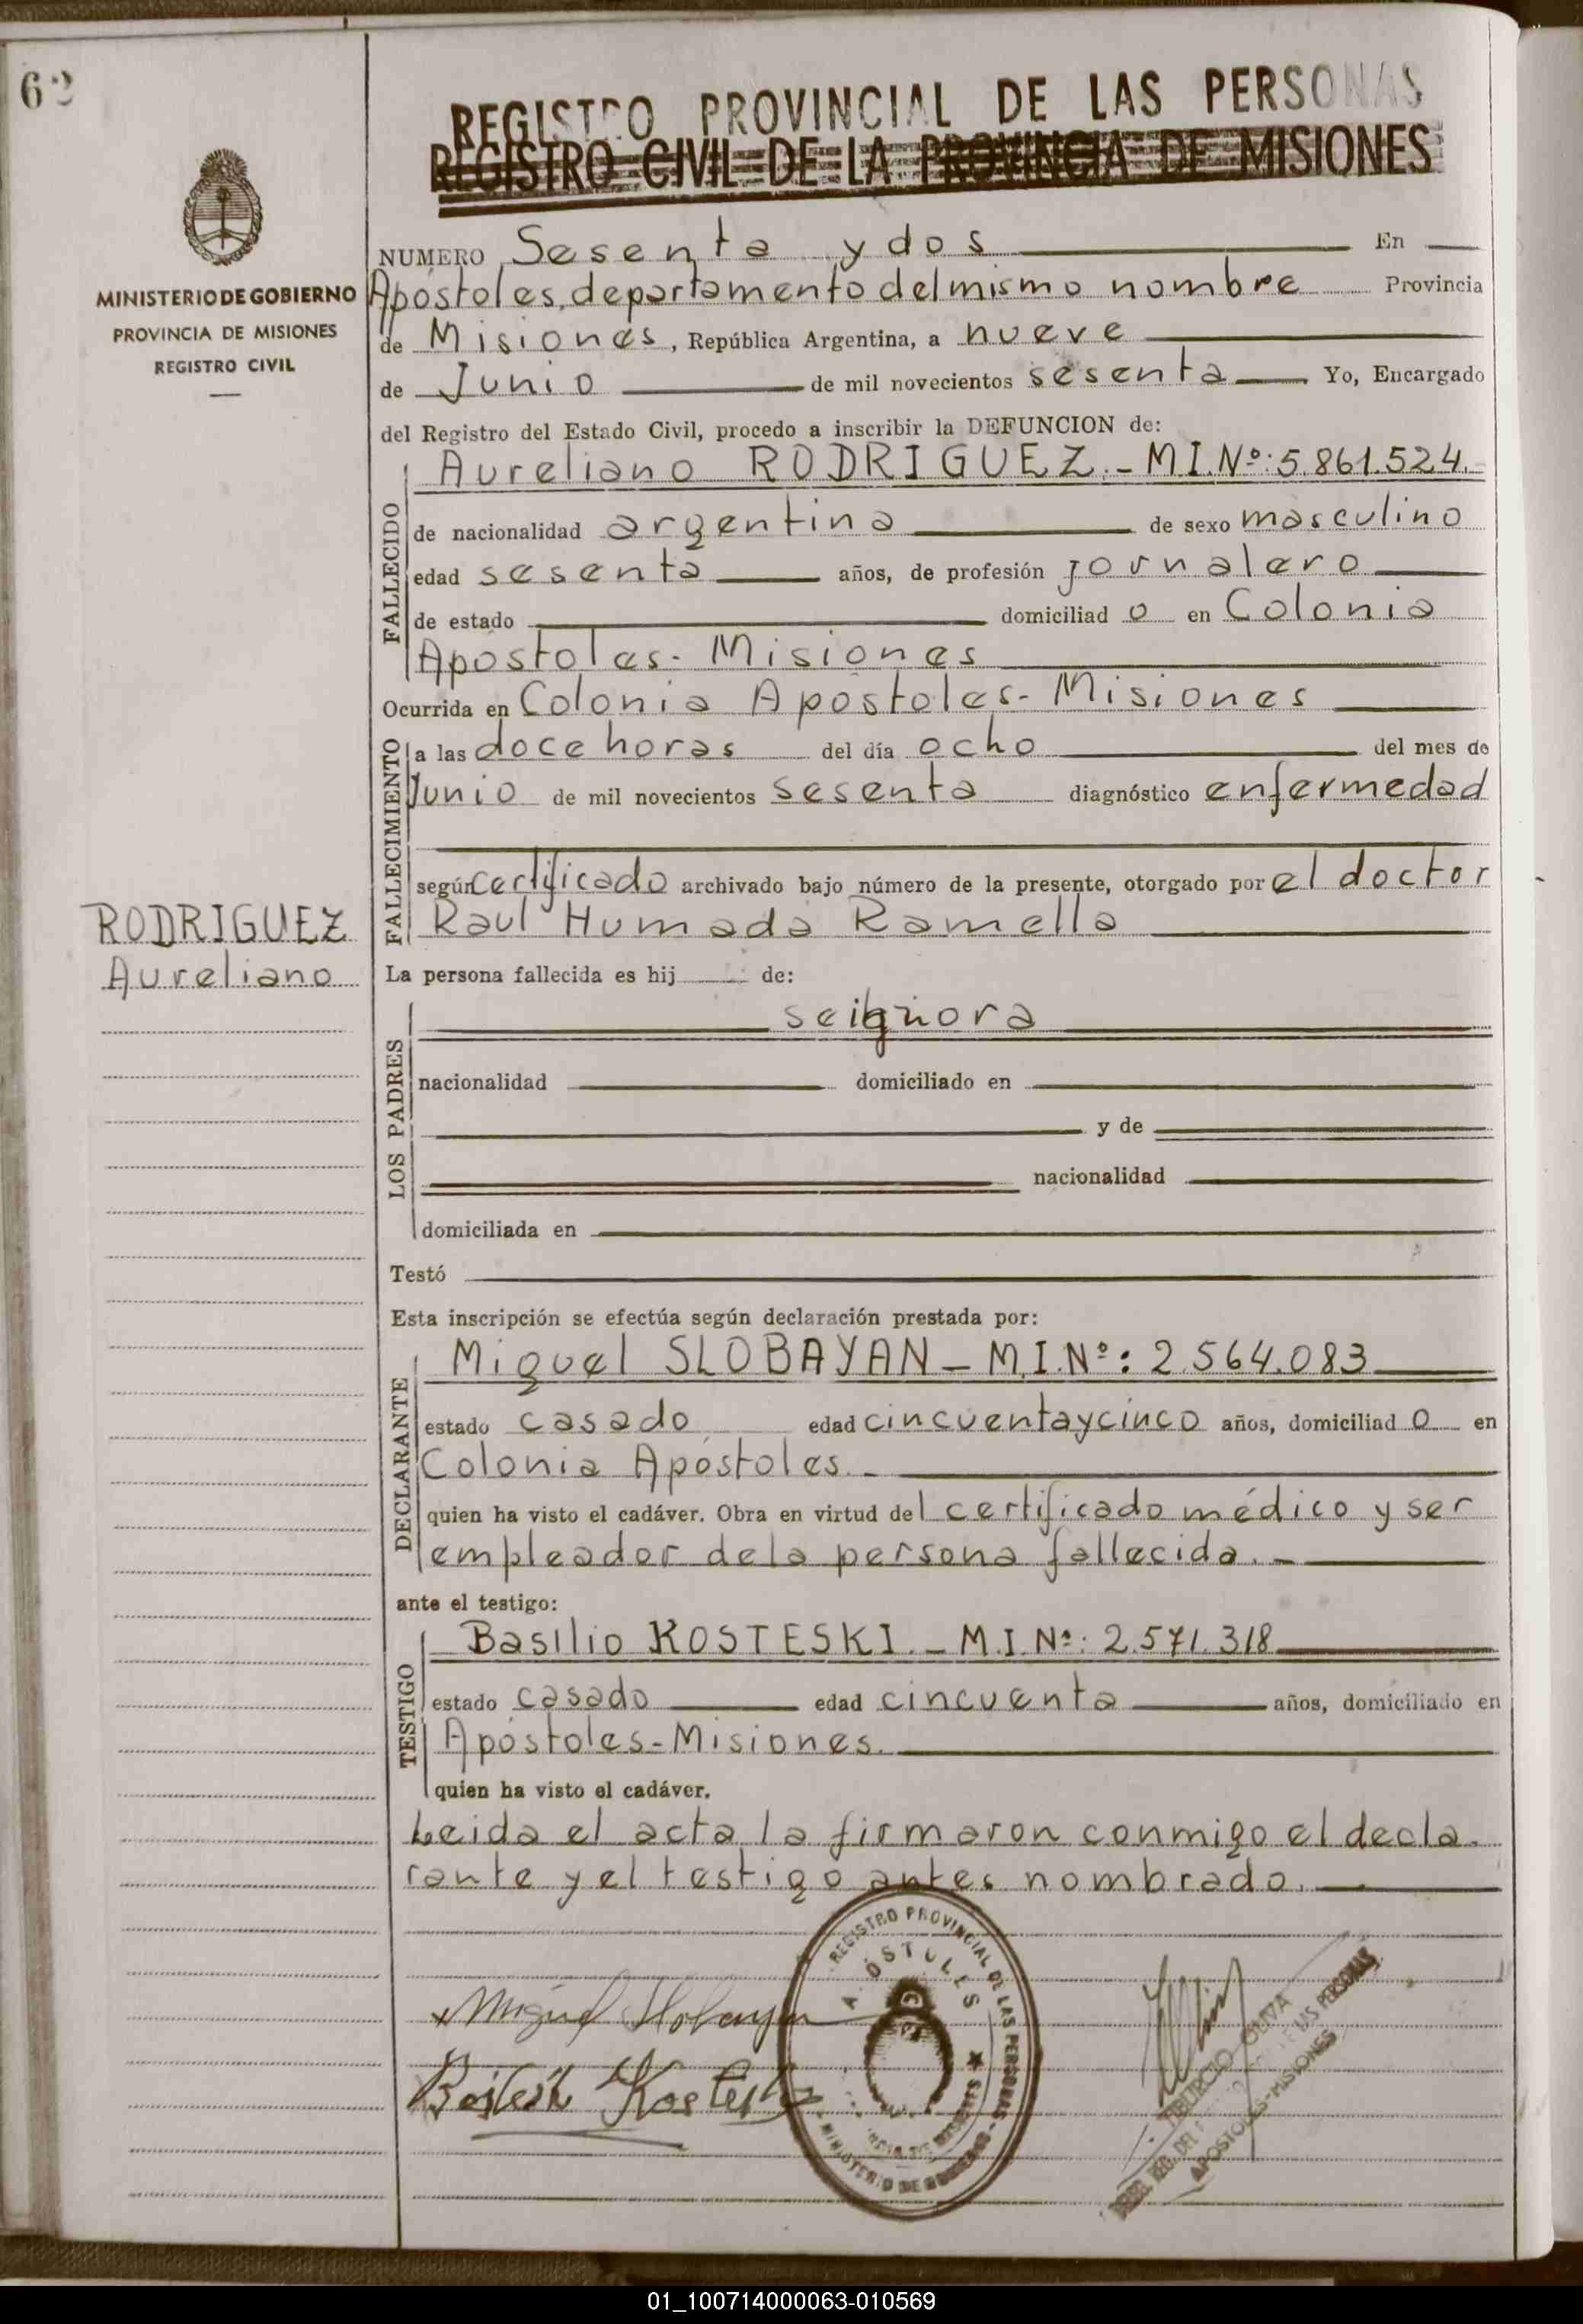 62
MINISTERIO DE GOBIERNO
PROVINCIA DE MISIONES
REGISTRO CIVIL
REGISTRO PROVINCIAL DE LAS PERSONAS
REGISTRO CIVIL DE LA PROVINCIA DE MISIONES
NUMERO Sesenta y dos En
Apóstoles, departamento del mismo nombre Provincia
de Misiones, República Argentina, a nueve
de Junio de mil novecientos sesenta Yo, Encargado
del Registro del Estado Civil, procedo a inscribir la DEFUNCION de:
FALLECIDO
Aureliano RODRIGUEZ.- M I. Nº: 5.861.524.
de nacionalidad argentina de sexo masculino
edad sesenta años, de profesión jornalero
de estado domiciliad o en Colonia
Apostoles- Misiones
Ocurrida en Colonia Apóstoles- Misiones
FALLECIMIENTO
a las doce horas del día ocho del mes de
Junio de mil novecientos sesenta diagnóstico enfermedad
según certificado archivado bajo número de la presente, otorgado por el doctor
Raul Humada Ramella
RODRIGUEZ
Aureliano
La persona fallecida es hij de:
LOS PADRES
nacionalidad domiciliado en
y de
nacionalidad
domiciliada en
Testó
Esta inscripción se efectúa según declaración prestada por:
DECLARANTE
Miguel SLOBAYAN - M.I.Nº: 2.564.083
estado casado edad cincuentaycinco años, domiciliad o en
Colonia Apóstoles.-
quien ha visto el cadáver. Obra en virtud del certificado médico y ser
empleador dela persona fallecida.-
ante el testigo:
TESTIGO
Basilio KOSTESKI.- M.I Nº: 2.571.318
estado casado edad cincuenta años, domiciliado en
Apóstoles-Misiones.
quien ha visto el cadáver.
Leida el acta la firmaron conmigo el decla-
rante y el testigo antes nombrado.
REGISTRO PROVINCIAL DE LAS PERSONAS
APOSTOLES
MINISTERIO DE GOBIERNO
Miguel Slobayan
OLIVA
APOSTOLES-MISIONES
01_100714000063-010569